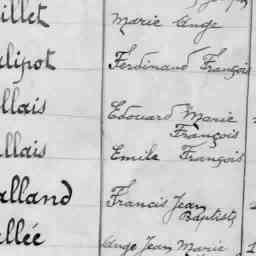 illet Marie Ange
lipot Ferdinand François
llais Edouard Marie
François
llais Emile François
alland Francis Jean
Baptiste
llée Ange Jean Marie